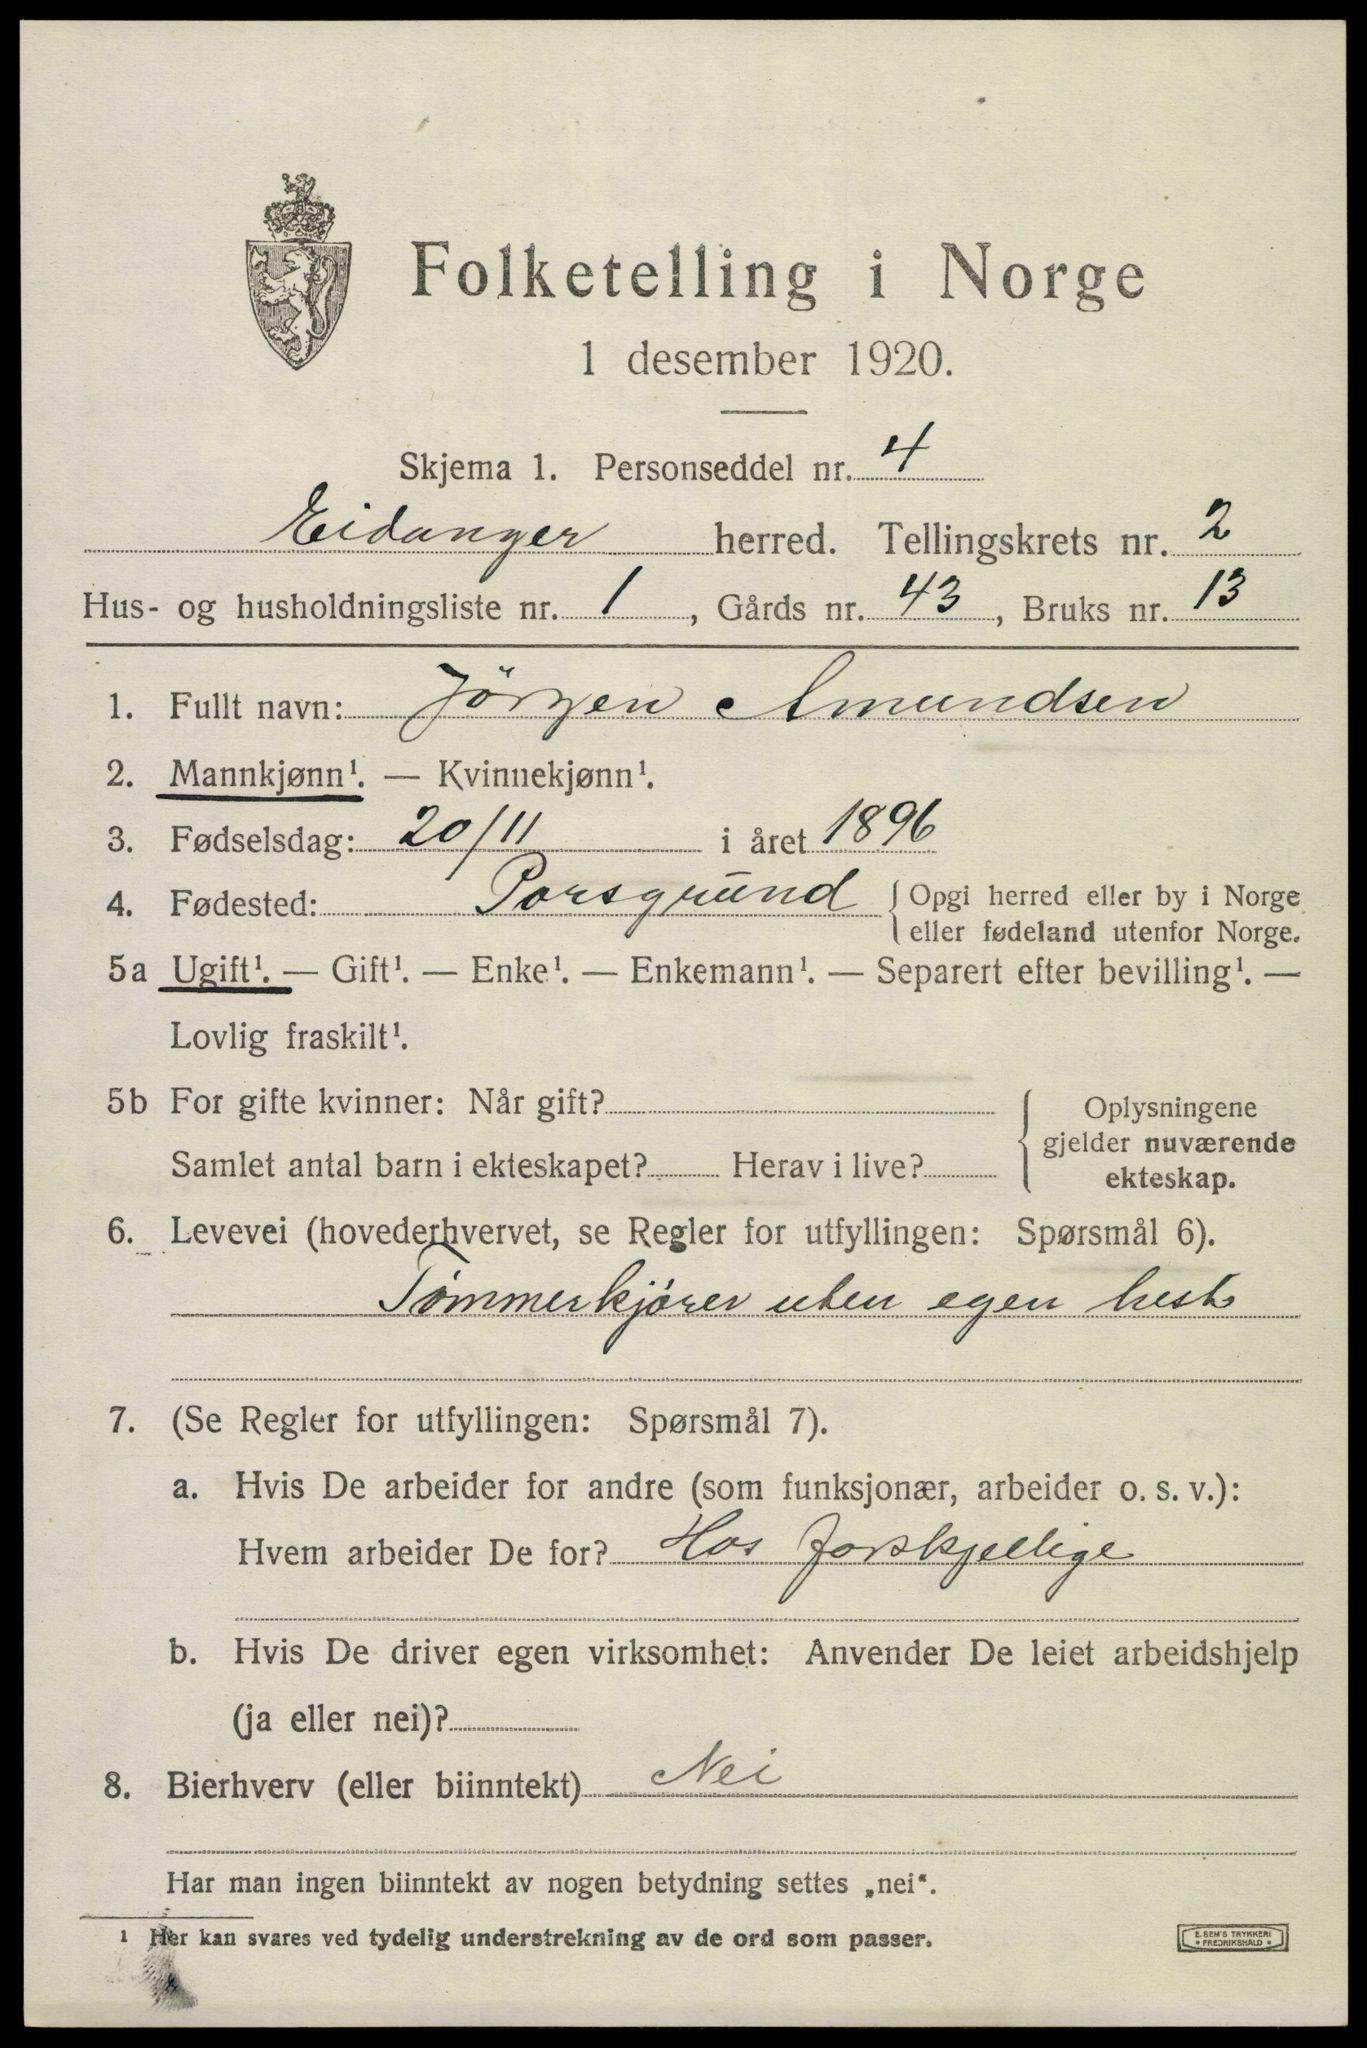 Folketelling i Norge
1 desember 1920.
Skjema 1. Personseddel nr. 4
Eidanger herred. Tellingskrets nr. 2
Hus- og husholdningsliste nr. 1, Gårds nr. 43, Bruks nr. 13
1. Fullt navn: Jörgen Amundsen
2. Mannkjønn¹. — Kvinnekjønn¹.
3. Fødselsdag: 20/11 i året 1896
4. Fødested: Porsgrund { Opgi herred eller by i Norge
eller fødeland utenfor Norge.
5a Ugift¹. — Gift¹. — Enke¹. — Enkemann¹. — Separert efter bevilling¹. —
Lovlig fraskilt¹.
5b For gifte kvinner: Når gift?
Samlet antal barn i ekteskapet? Herav i live?
{ Oplysningene
gjelder nuværende
ekteskap.
6. Levevei (hovederhvervet, se Regler for utfyllingen: Spørsmål 6).
Tømmerkjører uten egen hest
7. (Se Regler for utfyllingen: Spørsmål 7).
a. Hvis De arbeider for andre (som funksjonær, arbeider o. s. v.):
Hvem arbeider De for? Hos forskjellige
b. Hvis De driver egen virksomhet: Anvender De leiet arbeidshjelp
(ja eller nei)?
8. Bierhverv (eller biinntekt) Nei
Har man ingen biinntekt av nogen betydning settes „nei".
¹ Her kan svares ved tydelig understrekning av de ord som passer.
E. SEM'S TRYKKERI
• FREDRIKSHALD •